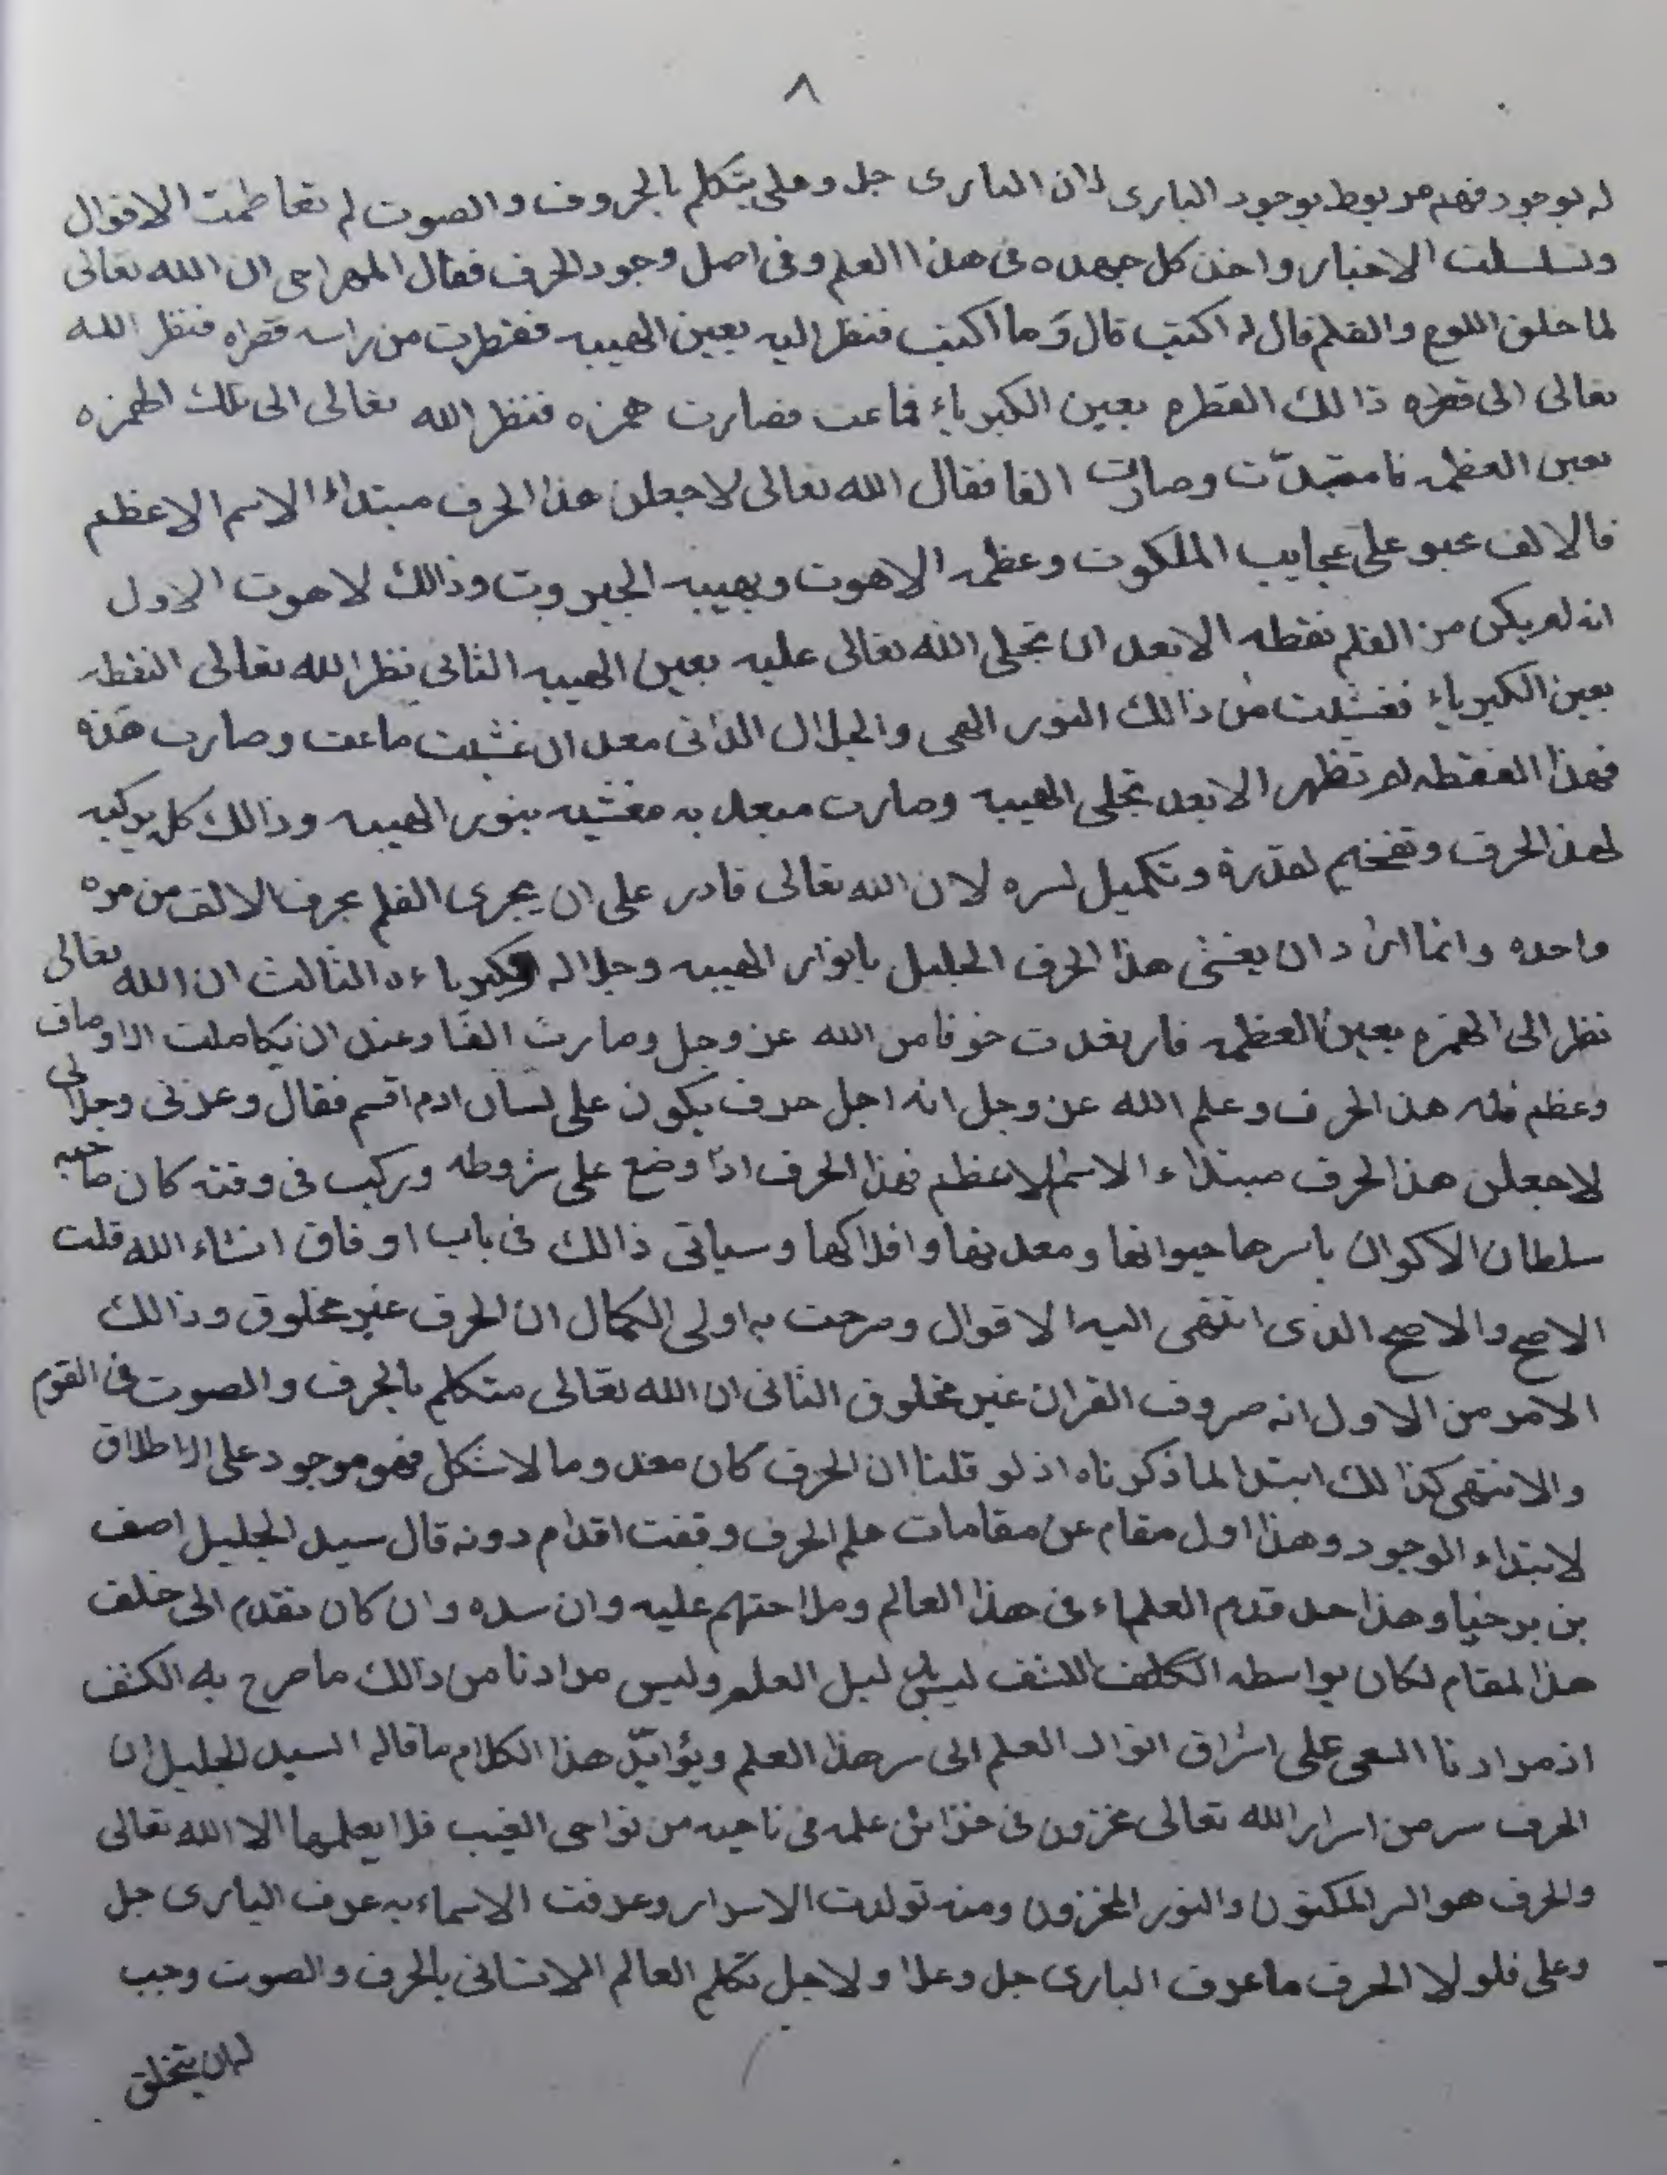 ٨
له بوجود فهم مربوط بوجود البارى لان البارى جل وعلى يتكلم بالحروف والصوت لم تعاطمت الاقوال
وتسلسلت الاخبار واخذ كل جهده فى هذا العلم وفى اصل وجود الحرف فقال المهراجى ان الله تعالى
لما خلق اللوح والقلم قال له اكتب قال وَما اكتب فنظر اليه بعين الهيبه فقطرت من راسه قطره فنظر الله
تعالى الى قطره ذالك القطره بعين الكبرياء فماعت فصارت همزه فنظر الله تعالى الى تلك الهمزه
بعين العظمه وصارت الفا فقال الله تعالى لاجعلن هذا الحرف مبتداء الاسم الاعظم
فالالف على عجايب الملكوت وعظمه الاهوت وبهيبه الجبروت وذالك لاهوت الاول
انه لم يكن من القلم نقطه الا بعد ان تجلى الله تعالى عليه بعين الهيبه الثانى نظر الله تعالى النقطه
بعين الكبرياء فغشيت من ذالك النور البهى والجلال الذاتى معد ان غشيت ماعت وصارت هذه
فهذا النقطه لم تظهر الا بعد تجلى الهيبه وصارت مغشيه بنور الهيبه وذالك كل
لهذ الحرف وتفخيم لقدرة وتكميل لسره لان الله تعالى قادر على ان يجرى القلم بحرف الالف من مره
واحده وانما اراد ان يغشى هذا الحرف الجليل بانوار الهيبه وجلاله وكبرياءه الثالث ان الله تعالى
نظر الى الهمزه بعين العظمه فارتعدت خوفا من الله عز وجل وصارت الفًا وعند ان تكاملت الاوصاف
وعظم هذ الحرف وعلم الله عز وجل انه اجل حرف يكون على لسان ادم اقسم فقال وعزتى وجلالى
لاجعلن هذ الحرف مبتداء الاسم الاعظم فهذا الحرف اذا وضع على شروطه وركب فى وقته كان صاحبه
سلطان الاكوان باسرها حيوانها ومعدنها وافلاكها وسياتى ذالك فى باب اوفاق انشاء الله قلت
الاصح والاصح الذى انتهى اليه الاقوال وصرحت به اولى الكمال ان الحرف غير مخلوق وذالك
الامر من الاول انه حروف القران غير مخلوق الثانى ان الله تعالى متكلم بالحرف والصوت فى القوم
والانتهى كذالك ابتدا لما ذكرناه اذ لو قلنا ان الحرف كان معدوما لاشكل فهو موجود على الاطلاق
لابتداء الوجود وهذا اول مقام عن مقامات علم الحرف وقفت اقدام دونه قال سيد الجليل اصف
بن برخيا وهذا حد قدم العلماء فى هذا العالم وملاحتهم عليه وان سده وان كان تقدم الى خلف
هذ المقام لكان بواسطه ليل العلم وليس مرادنا من ذالك ما صرح به الكشف
اذ مرادنا السعى على اشراق انوار العلم الى سر هذا العلم ويؤايّد هذا الكلام ما قاله السيد الجليل ان
الحرف سر من اسرار الله تعالى مخزون فى خزائن علمه فى ناحيه من نواحى الغيب فلا يعلمها الا الله تعالى
والحرف هو السر المكنون والنور المخزون ومنه تولدت الاسرار وعرفت الاسماء به عرف البارى جل
وعلى فلولا الحرف ما عرف البارى جل وعلا ولاجل تكلم العالم الانسانى بالحرف والصوت وجب
لمن يتخلق